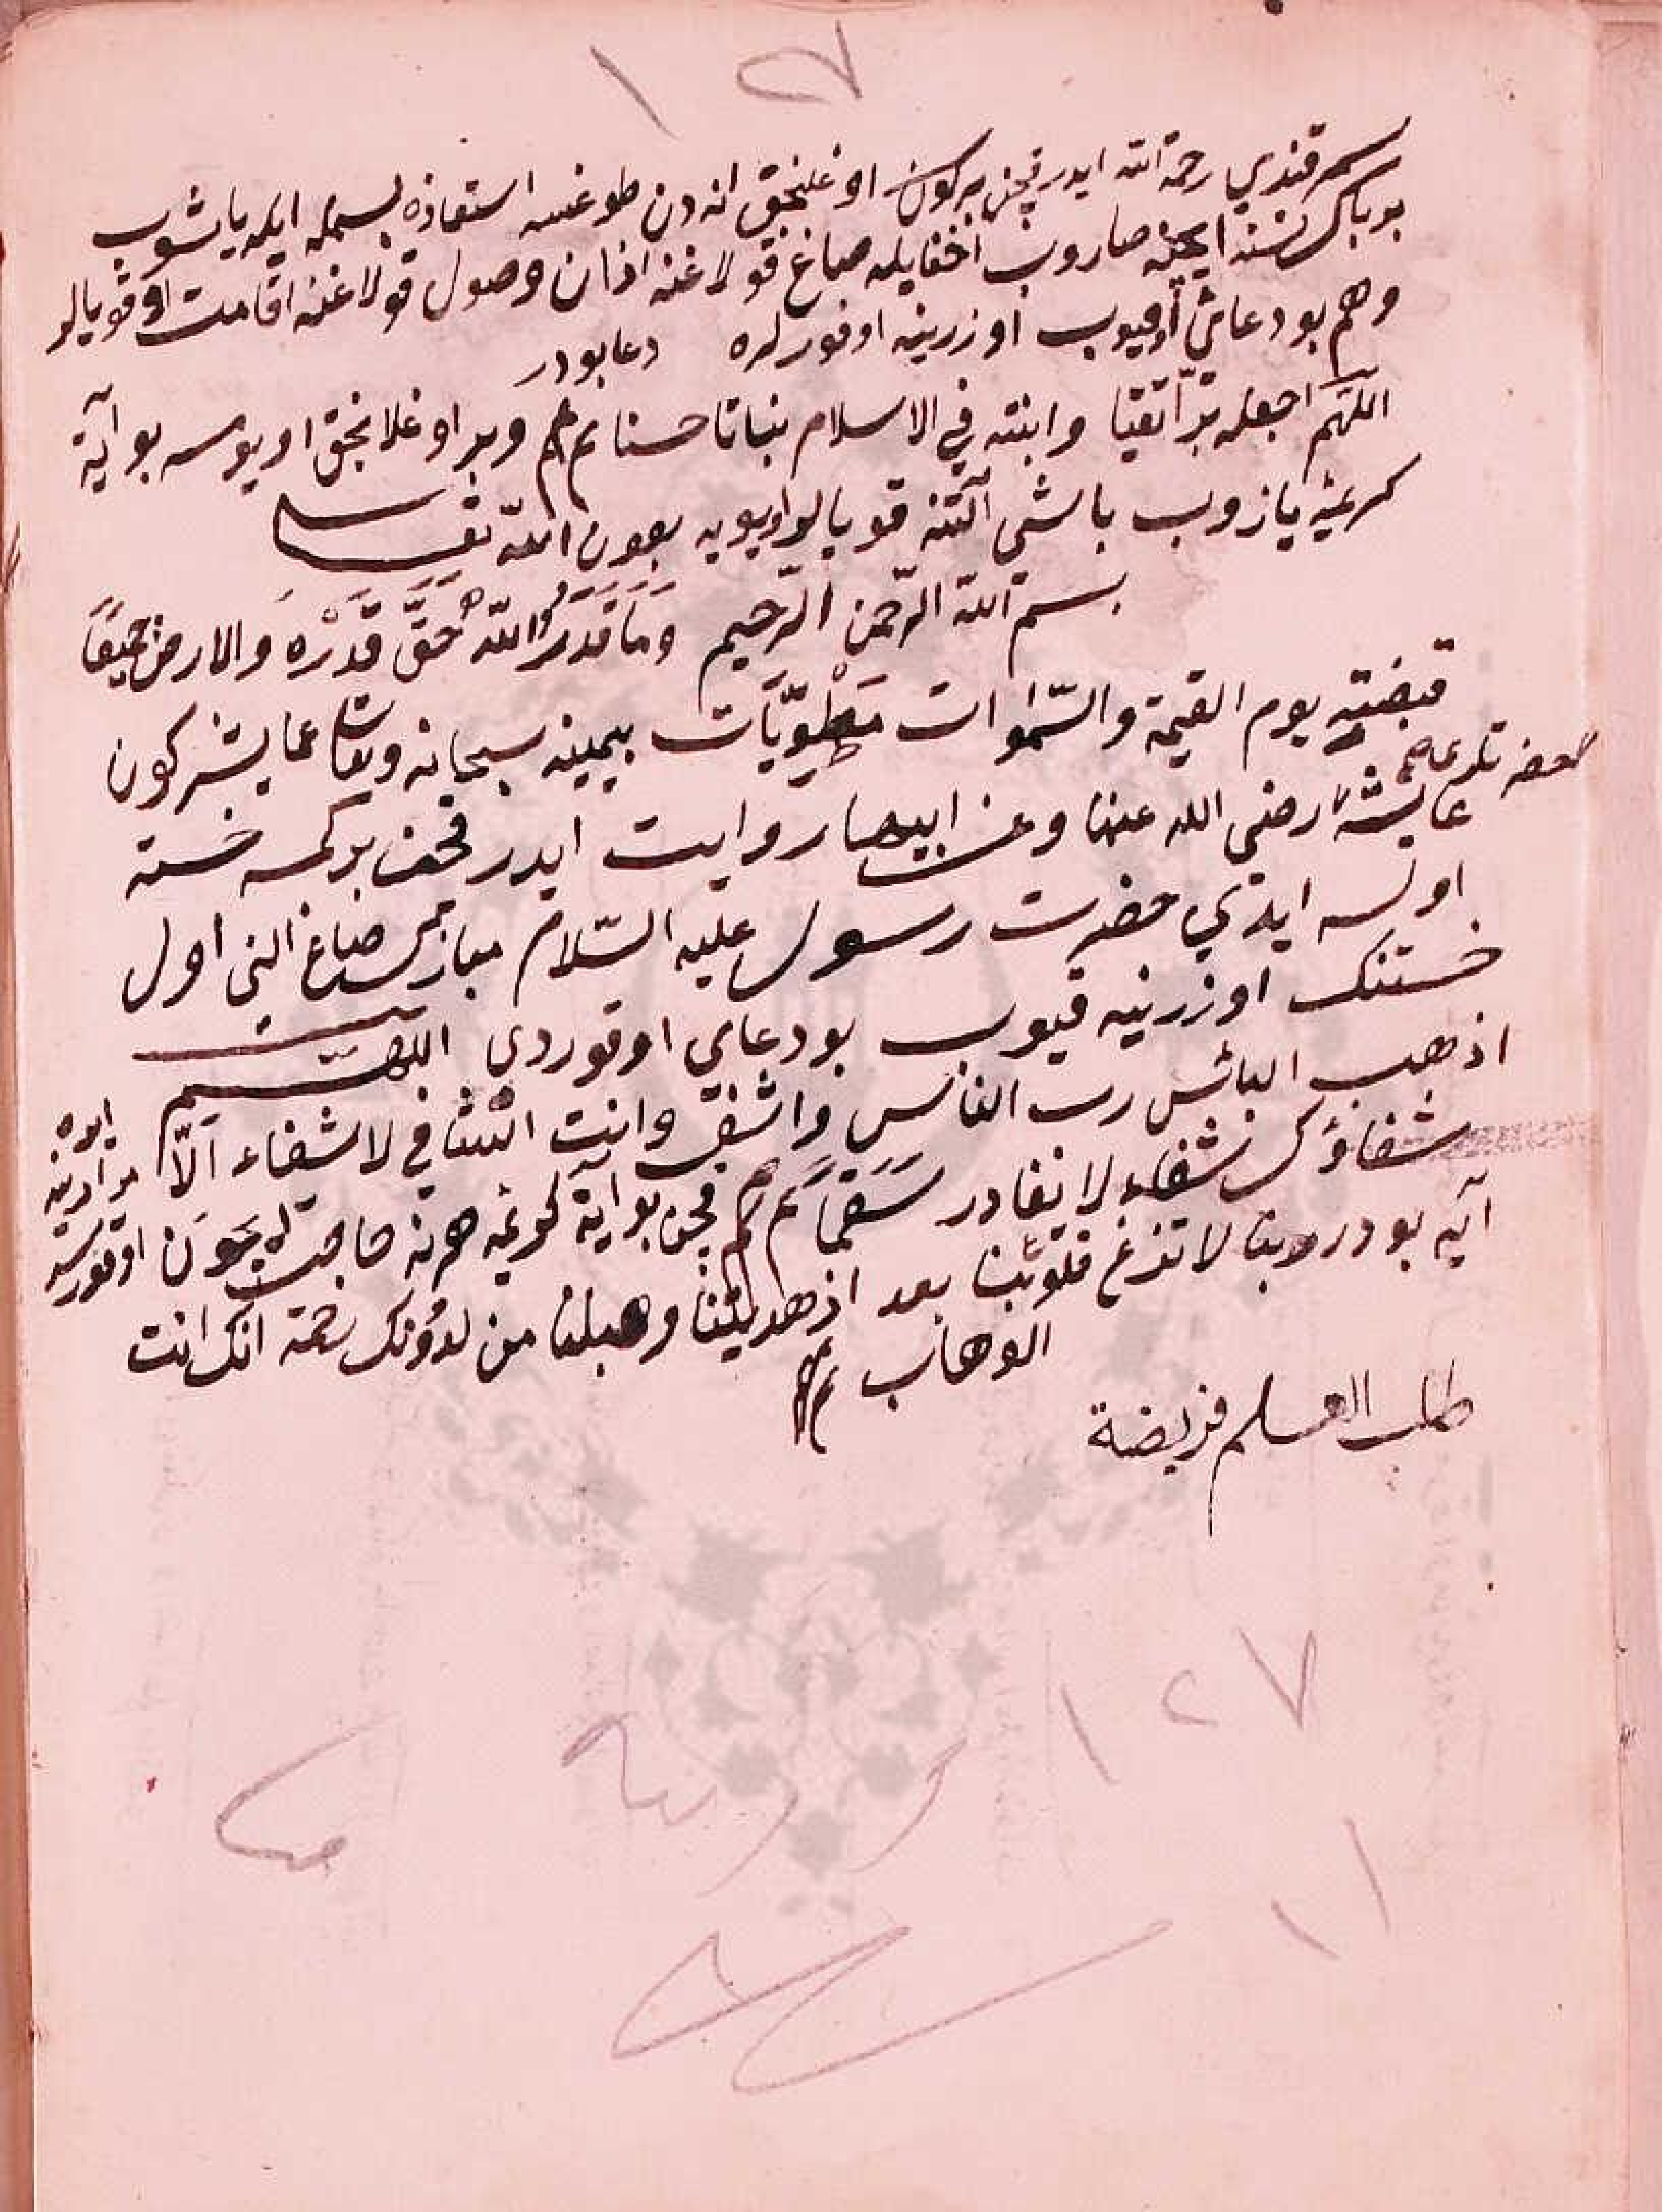 ١٢٧
سمرقندي رحمة الله ايدر قچن بر كون اوغلنجق انه دن طوغسه استعاذه بسمله ايله يا شوب
بو پاك نسنه ايچنه صاروب اخفايله صاغ قولاغنه اذان وصول قولاغنه اقامت اوقويالر
وهم بو دعايى اوقيوب اوزرينه اوفورلره دعا بودر
اللهم اجعله برا تقيا وانبته في الاسلام نباتا حسنا تم وبر اوغلانجق اويومسه بو آية
كريمه يازوب باشى آلتنه قويالر اويويه بعون الله تعالى
بسم الله الرحمن الرحيم وَمَا قَدَرُوا اللهَ حَقَّ قَدْرِهِ وَالارض جميعًا
قبضته يوم القيمة والسّموات مَطْوِيَّات بيمينه سبحانه وتعالى عما يشركون
حضرتلرى
عايشه رضي الله عنها وعن ابيها روايت ايدر قچن بر كمسه خسته
اولسه ايدي حضرت رسول عليه السّلام مبارك صاغ الني اول
خستنك اوزرينه قيوب بو دعاي اوقوردى اللهم
اذهب البأس رب الناس واشف وانت الشافي لا شفاء الّا
شفاؤك شفاء لا يغادر سَقَمًا تم قچن بو آية كريمه هر نه حاجت ايچون اوقورسه
آيه بودر ربنا لا تزغ قلوبنا بعد اذ هديتنا وهبلنا من لدونك رحمة انك انت
الوهاب تم
طلب العلم فريضة
١٢٧
١١